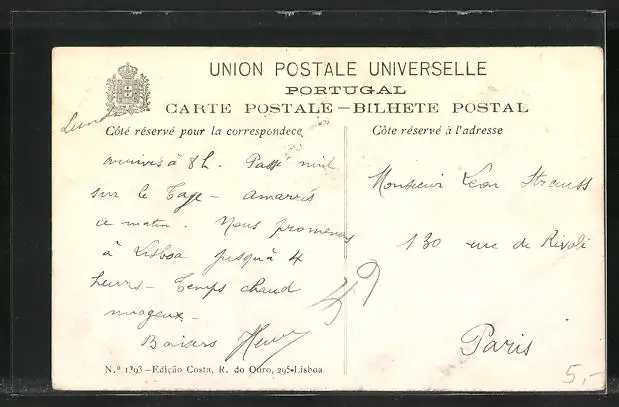 UNION POSTALE UNIVERSELLE
PORTUGAL
CARTE POSTALE — BILHETE POSTAL
Côté réservé pour la correspondece
Lundi
arrivés à 8 h. Passé nuit
sur le Tage - amarrés
ce matin. Nous promenons
à Lisboa jusqu'à 4
heurs - Temps chaud
nuageux -
Baisers Henri
N.º 1393—Edição Costa, R. do Ouro, 295-Lisboa
Côte réservé à l'adresse
Monsieur Léon Strauss
130 rue de Rivoli
Paris
5,-